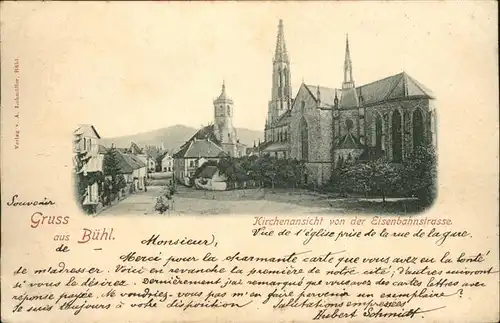 Verlag v. A. Lohmüller, Bühl.
Souvenir
Gruss
aus Bühl.
de
Kirchenansicht von der Eisenbahnstrasse.
Vue de l'église prise de la rue de la gare.
Monsieur,
Merci pour la charmante carte que vous avez eu la bonté
de m'adresser. Voici en revanche la première de notre cité, d'autres suivront
si vous le desirez. Dernièrement j'ai remarqué que vous avez des cartes lettres avec
réponse payée. Ne voudriez-vous pas m'en faire parvenir un exemplaire?
Je suis toujours à votre disposition Salutations empressées
Hubert Schmitt